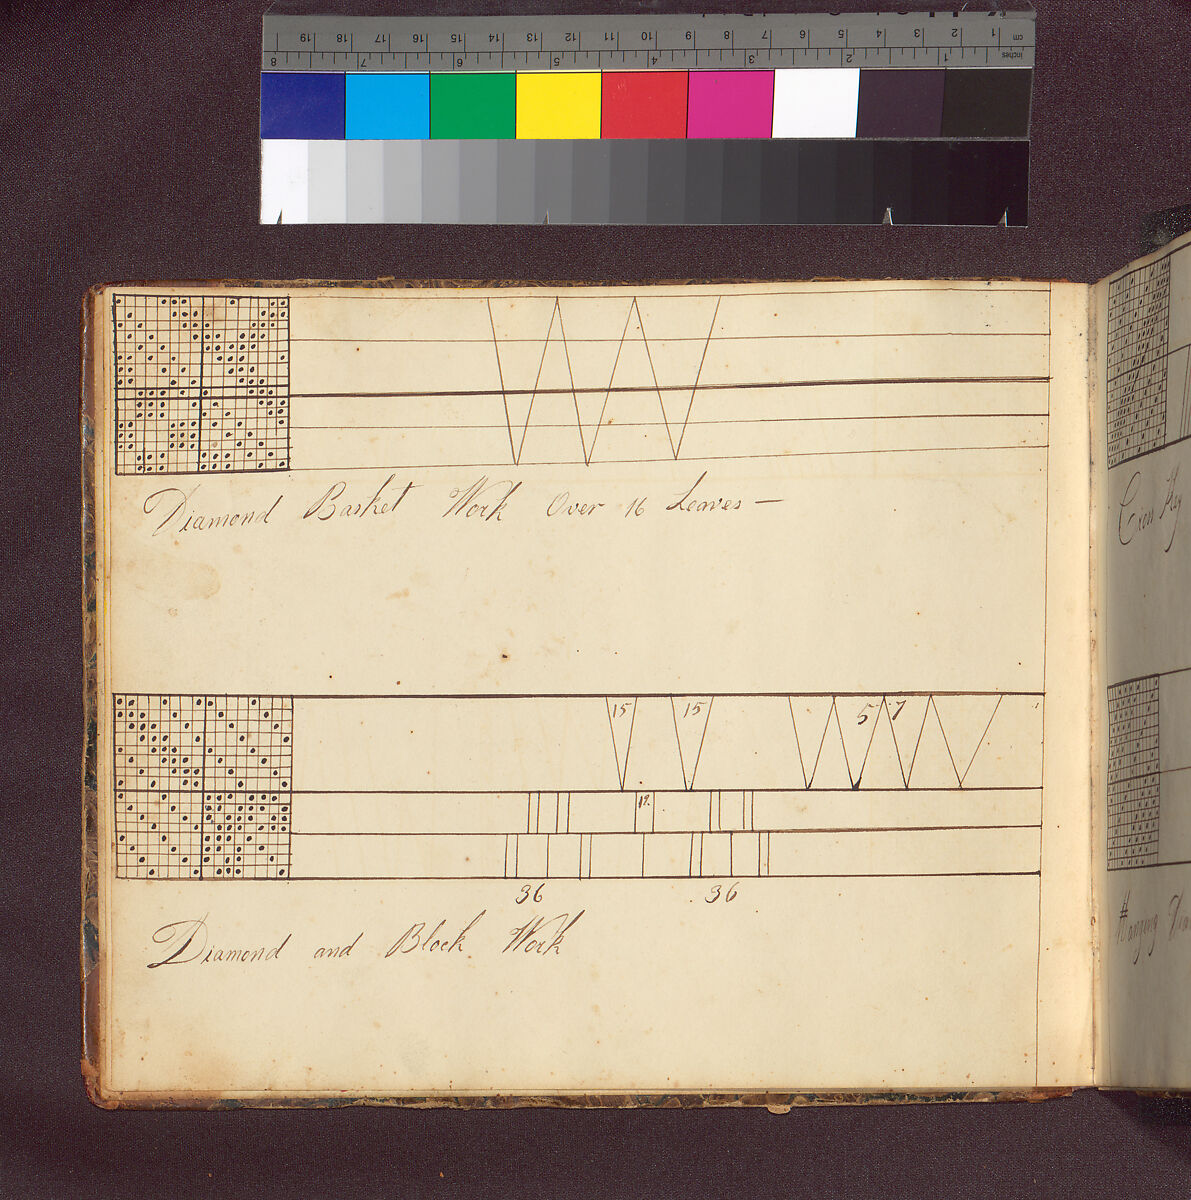 cm 1 2 3 4 5 6 7 8 9 10 11 12 13 14 15 16 17 18 19
inches 1 2 3 4 5 6 7 8
Diamond Basket Work Over 16 Leaves —
15 15 5 7
12
36 36
Diamond and Block Work